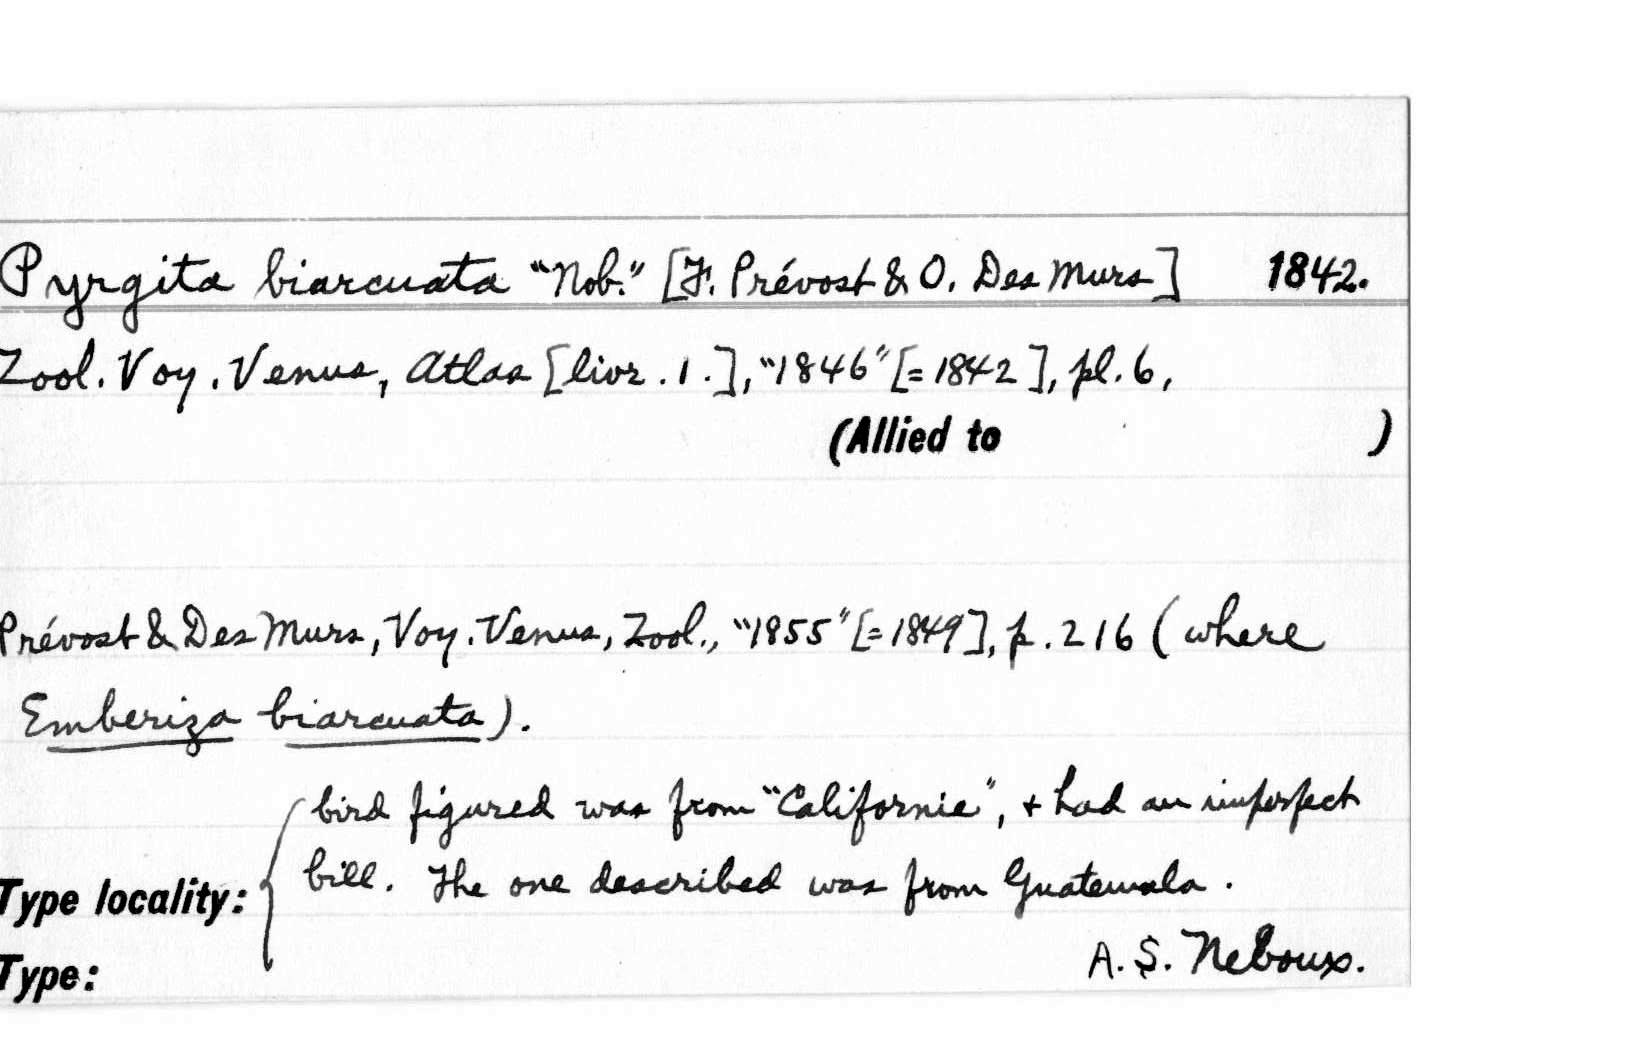 Pyrgita biarcuata "Nob." [F. Prévost & O. Des Murs] 1842.
Zool. Voy. Venus, Atlas [livr. 1.], "1846" [= 1842], pl. 6,
(Allied to )
Prévost & Des Murs, Voy. Venus, Zool., "1855" [= 1849], p. 216 (where
Emberiza biarcuata).
bird figured was from "Californie", + had an imperfect
bill. The one described was from Guatemala.
Type locality:
A. S. Neboux.
Type: